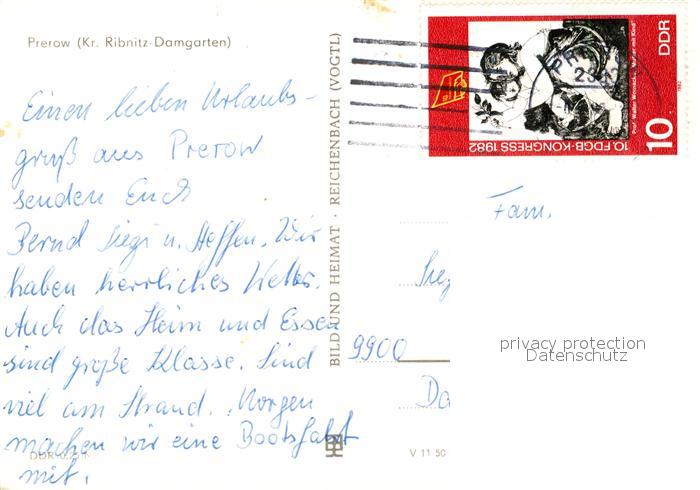 Prerow (Kr. Ribnitz-Damgarten)
Einen lieben Urlaubs-
gruß aus Prerow
senden Euch
Bernd Siegi u. Steffen. Wir
haben herrliches Wetter.
Auch das Heim und Essen
sind große Klasse. Sind
viel am Strand. Morgen
machen wir eine Bootsfahrt
mit.
BILD UND HEIMAT · REICHENBACH (VOGTL)
V 11 50
DDR
10
10. FDGB-KONGRESS 1982
Prof. Walter Womacka, „Mutter mit Kind"
1982
Fam.
9900
privacy protection
Datenschutz